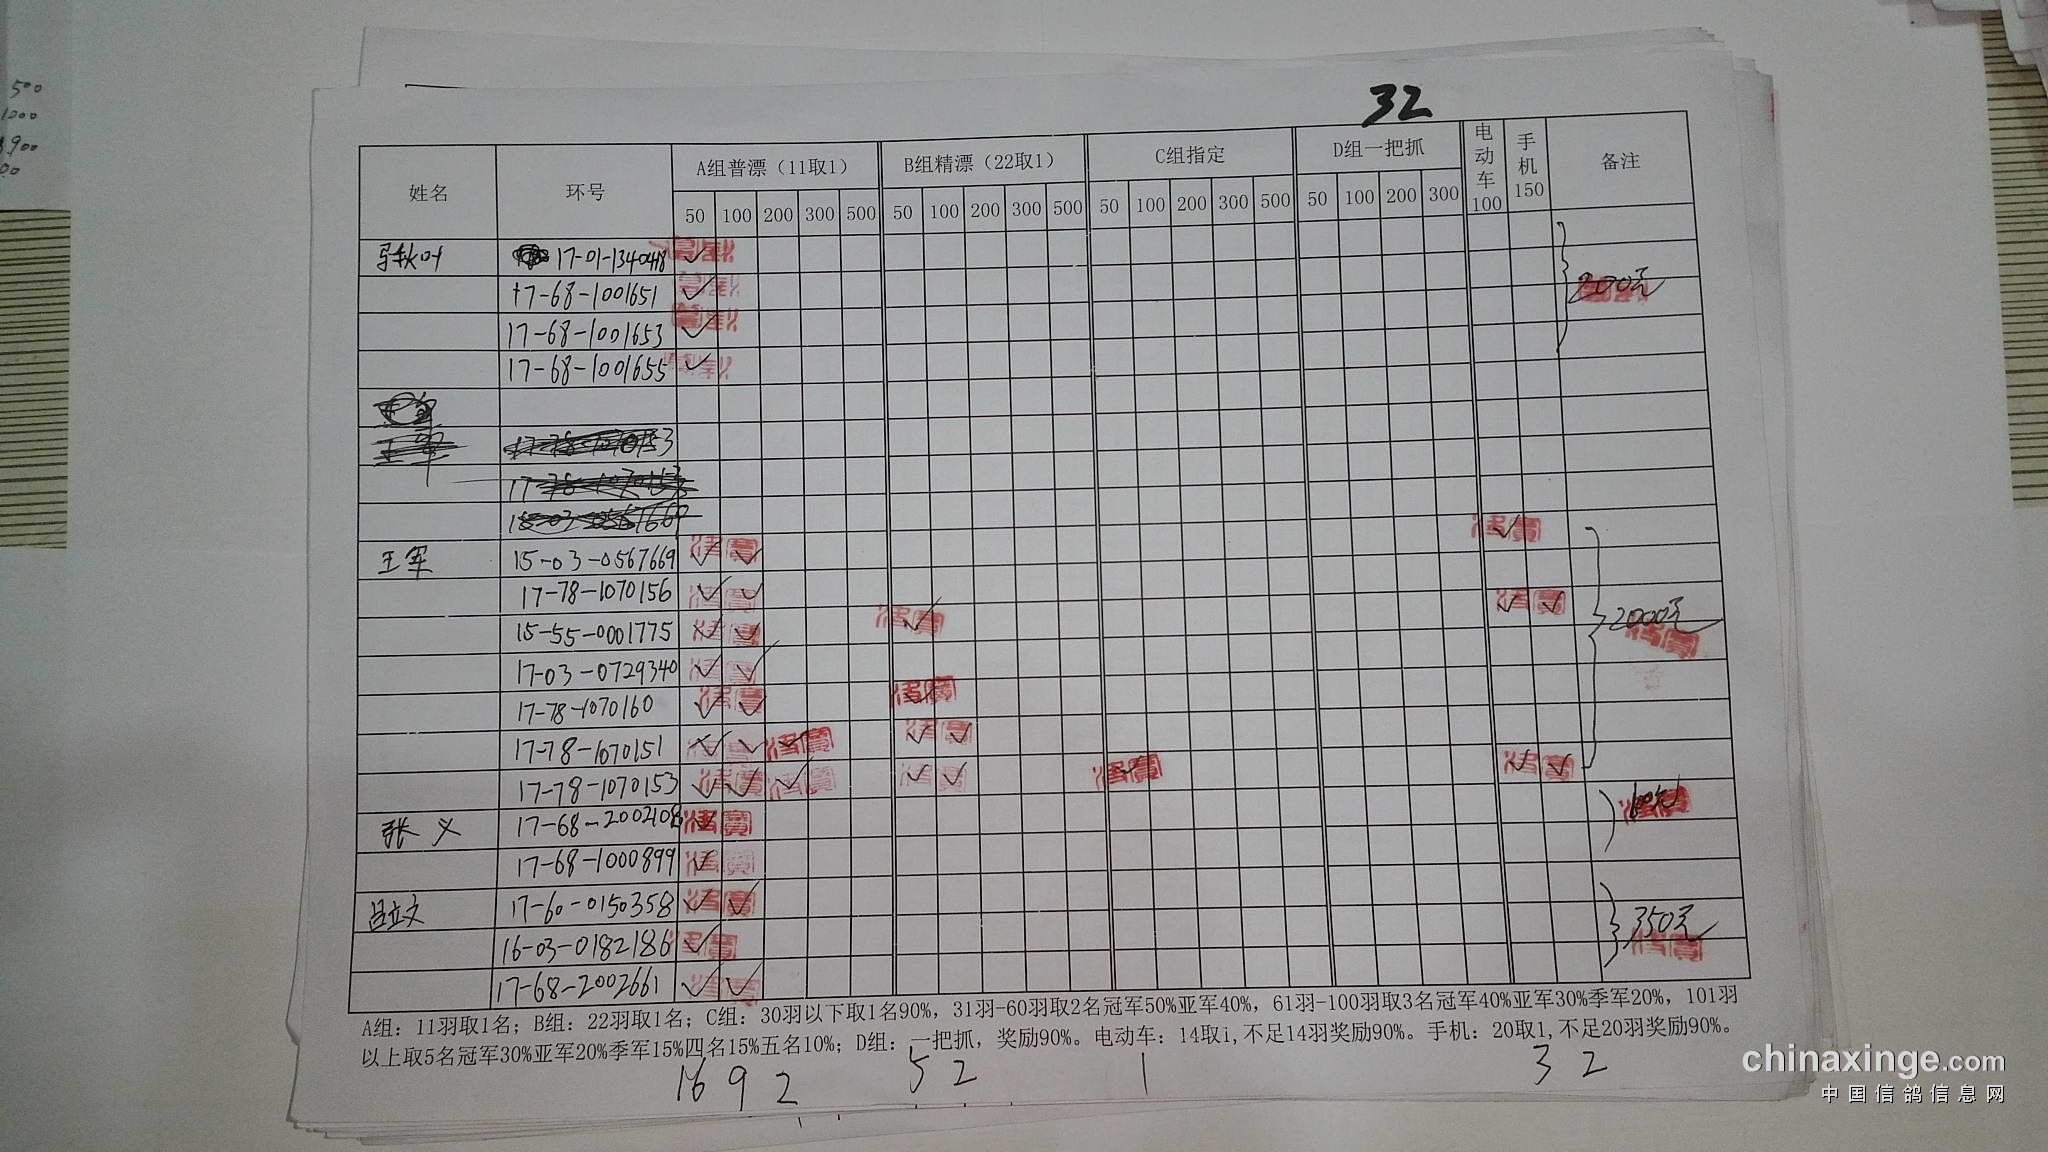 500
1000
900
32
姓名 环号 A组普漂（11取1） B组精漂（22取1） C组指定 D组一把抓 电动车100 手机150 备注
50 100 200 300 500 50 100 200 300 500 50 100 200 300 500 50 100 200 300
17-01-1340418 ✓ 200元
17-68-1001651 ✓
17-68-1001653 ✓
17-68-1001655 ✓
王军 15-03-0567669 ✓ ✓ ✓ 2000元
17-78-1070156 ✓ ✓
15-55-0001775 ✓ ✓ ✓ ✓ ✓
17-03-0729340 ✓ ✓
17-78-1070160 ✓ ✓ ✓
17-78-1070151 ✓ ✓ ✓ ✓ ✓
17-78-1070153 ✓ ✓ ✓ ✓ ✓ ✓ ✓ ✓
张义 17-68-2002108 ✓ 100元
17-68-1000899 ✓
吕立文 17-60-0150358 ✓ ✓ 350元
16-03-0182186 ✓
17-68-2002661 ✓ ✓
A组：11羽取1名；B组：22羽取1名；C组：30羽以下取1名90%，31羽-60羽取2名冠军50%亚军40%，61羽-100羽取3名冠军40%亚军30%季军20%，101羽
以上取5名冠军30%亚军20%季军15%四名15%五名10%；D组：一把抓，奖励90%。电动车：14取i,不足14羽奖励90%。手机：20取1,不足20羽奖励90%。
16 9 2 5 2 1 3 2
chinaxinge.com
中国信鸽信息网